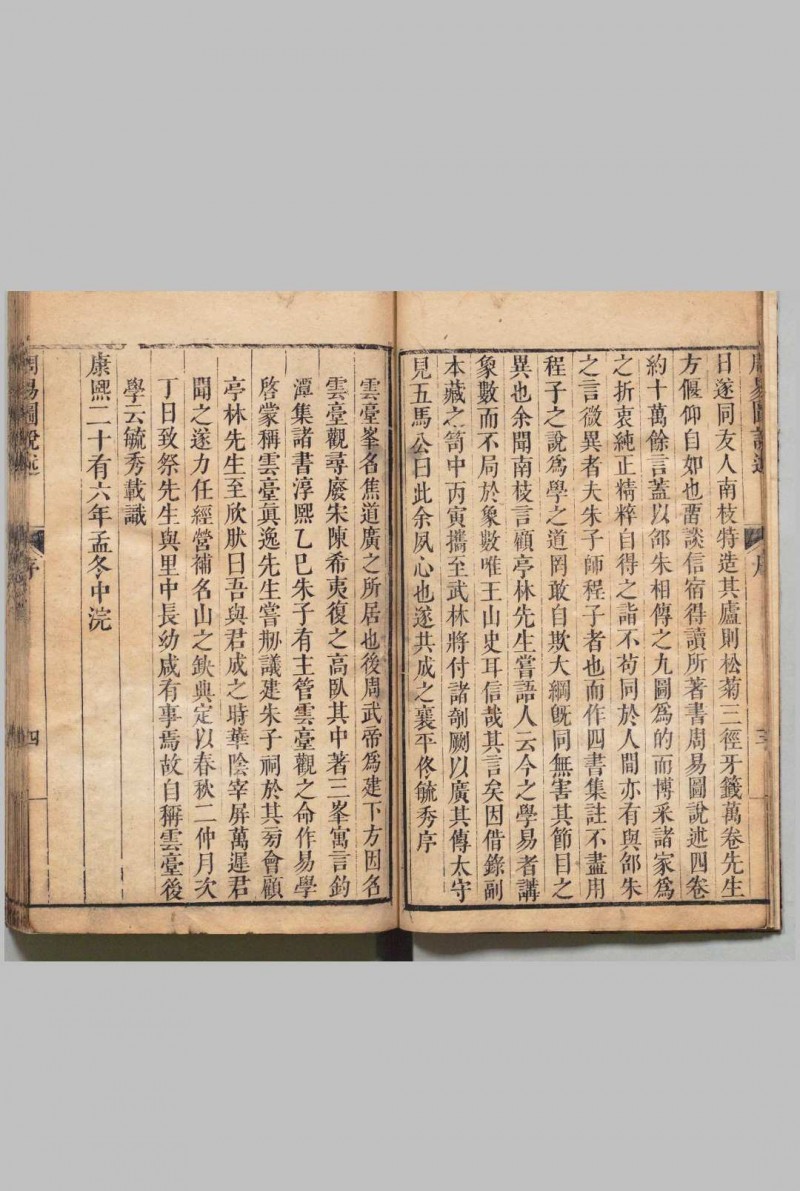 周易圖說述 序 三
日遂同友人南枝特造其廬則松菊三徑牙籤萬卷先生
方偃仰自如也畱談信宿得讀所著書周易圖說述四卷
約十萬餘言蓋以邵朱相傳之九圖爲的而博采諸家爲
之折衷純正精粹自得之詣不苟同於人間亦有與邵朱
之言微異者夫朱子師程子者也而作四書集註不盡用
程子之說爲學之道罔敢自欺大綱旣同無害其節目之
異也余聞南枝言顧亭林先生嘗語人云今之學易者講
象數而不局於象數唯王山史耳信哉其言矣因借錄副
本藏之笥中丙寅攜至武林將付諸剞劂以廣其傳太守
見五馬公曰此余夙心也遂共成之襄平佟毓秀序
雲臺峯名焦道廣之所居也後周武帝爲建下方因名
雲臺觀尋廢宋陳希夷復之高臥其中著三峯寓言釣
潭集諸書淳熙乙巳朱子有主管雲臺觀之命作易學
啓蒙稱雲臺眞逸先生嘗剏議建朱子祠於其㫄會顧
亭林先生至欣肰曰吾與君成之時華陰宰屏萬遲君
聞之遂力任經營補名山之缺典定以春秋二仲月次
丁日致祭先生與里中長幼咸有事焉故自稱雲臺後
學云毓秀載識
康熙二十有六年孟冬中浣
周易圖說述 序 四